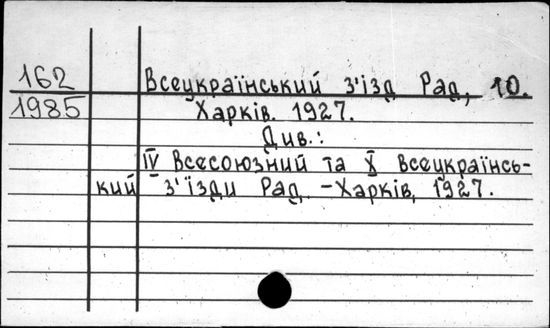 162 Всеукраїнський з'їзд Рад, 10.
1985 Харків. 1927.
Див.:
IV Всесоюзний та X Всеукраїнсь-
кий з'їзди Рад. -Харків, 1927.